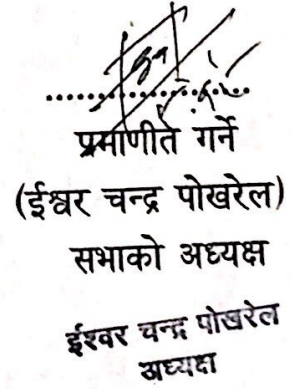 प्रमाणीत गर्ने
(ईश्वर चन्द्र पोखरेल)
सभाको अध्यक्ष
ईश्वर चन्द्र पोखरेल
अध्यक्ष